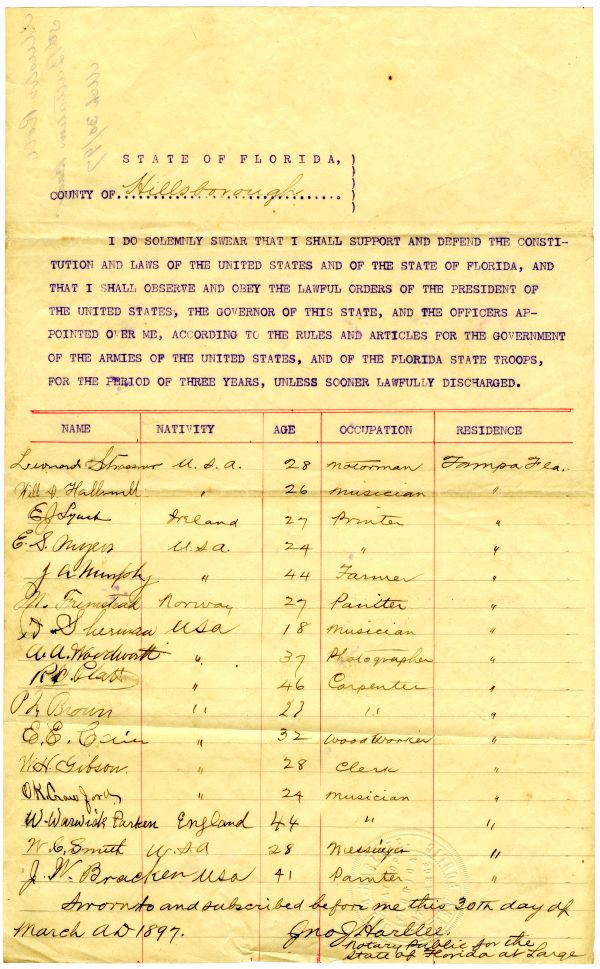 STATE OF FLORIDA,
COUNTY OF Hillsborough
I DO SOLEMNLY SWEAR THAT I SHALL SUPPORT AND DEFEND THE CONSTI-
TUTION AND LAWS OF THE UNITED STATES AND OF THE STATE OF FLORIDA, AND
THAT I SHALL OBSERVE AND OBEY THE LAWFUL ORDERS OF THE PRESIDENT OF
THE UNITED STATES, THE GOVERNOR OF THIS STATE, AND THE OFFICERS AP-
POINTED OVER ME, ACCORDING TO THE RULES AND ARTICLES FOR THE GOVERNMENT
OF THE ARMIES OF THE UNITED STATES, AND OF THE FLORIDA STATE TROOPS,
FOR THE PERIOD OF THREE YEARS, UNLESS SOONER LAWFULLY DISCHARGED.
NAME NATIVITY AGE OCCUPATION RESIDENCE
Leonard U.S.A. 28 Motorman Tampa Fla.
Will D. " 26 Musician "
E J Lynch Ireland 27 Printer "
E. S. Myers U.S.A. 24 " "
J A Murphy " 44 Farmer "
M. Norway 27 "
Sherman USA 18 Musician "
A. A. Wordworth " 37 Photographer "
R. C. Platt " 46 Carpenter "
P L Brown " "
E. E. " 32 Wood Worker "
W. H. Gibson " 28 Clerk "
O K Crawford " 24 Musician "
W. Warwick Parker England 44 " "
W. C. Smith USA 28 Messenger "
J. W. Bracken USA 41 Painter "
Sworn to and subscribed before me this 30th day of
March AD 1897. Jno J Harllee
Notary Public for the
State of Florida at Large